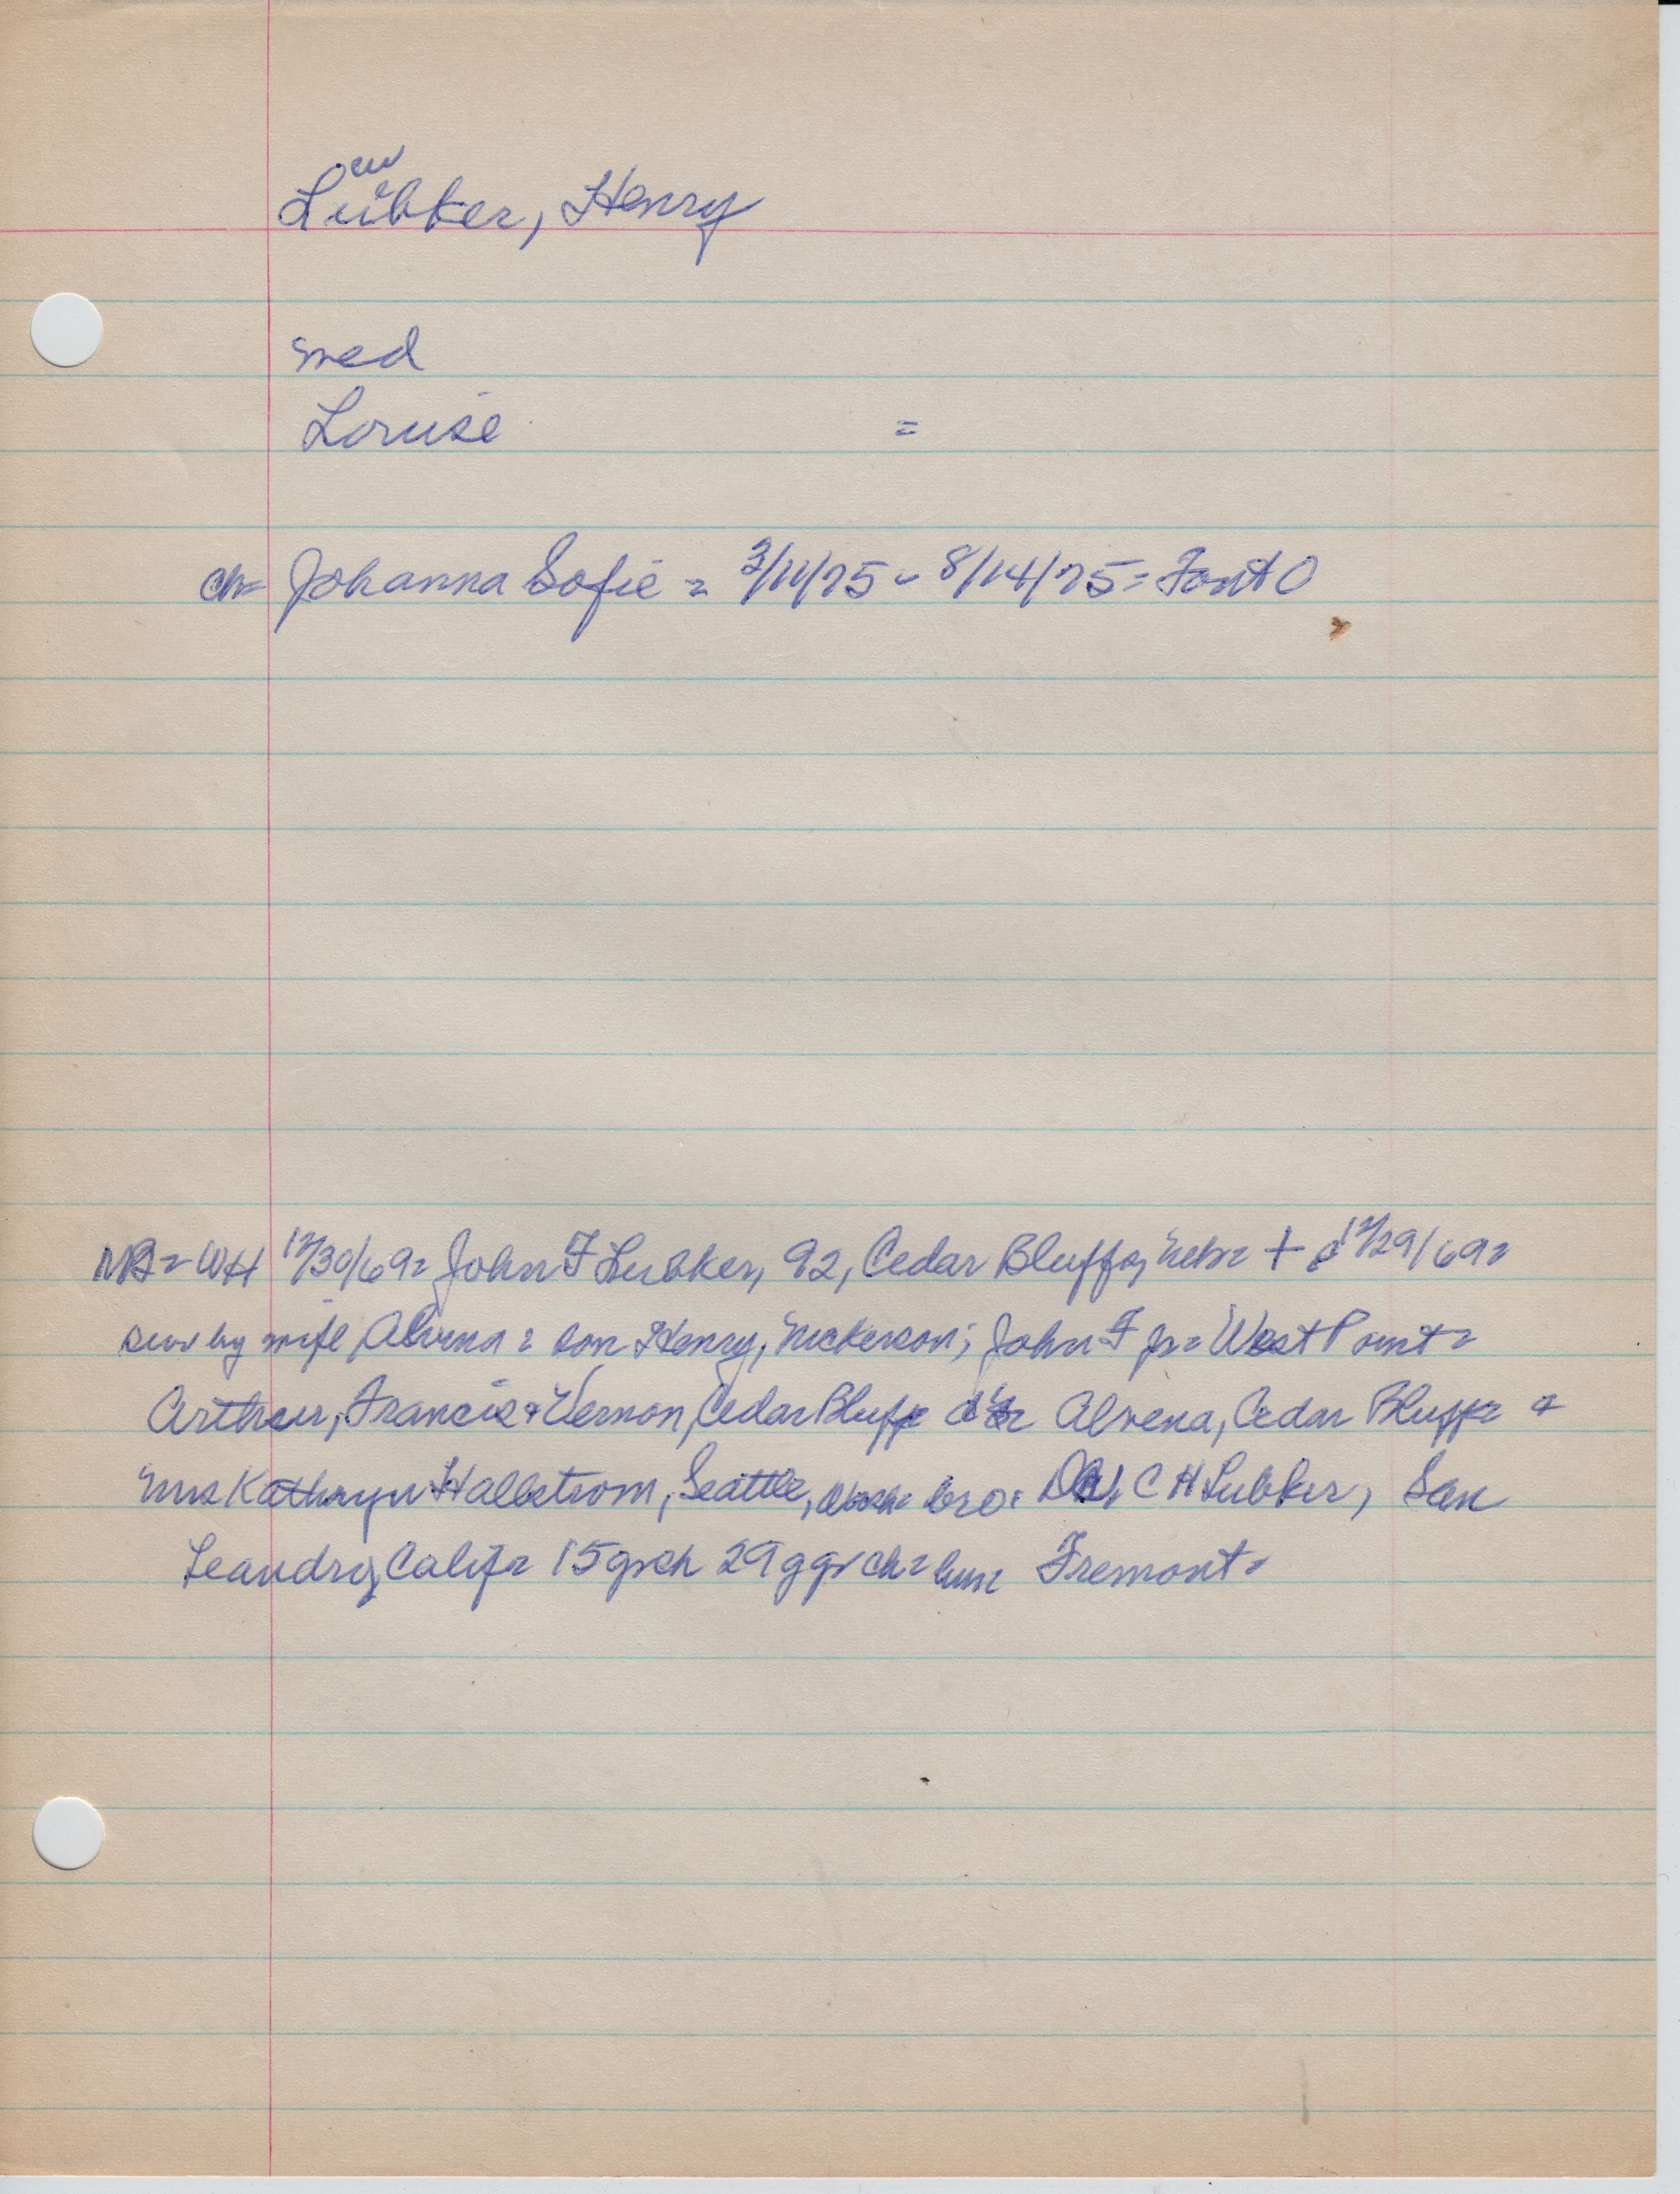 eu
Lübker, Henry
med
Louise =
ch= Johanna Sofie = 3/11/75 - 8/14/75 = Font O
NB= WH 12/30/69= John F Lubker, 92, Cedar Bluffs, Nebr + d 12/29/69=
surv by wife Alvena = son Henry, Nickerson; John F Jr= West Point=
Arthur, Francis + Vernon, Cedar Bluff d'tr Alvena, Cedar Bluff= +
Mrs Kathryn Hallstrom, Seattle, Wash= bro: C H Lubker, San
Leandro, Calif= 15 grch 29 ggrch= Fremont=